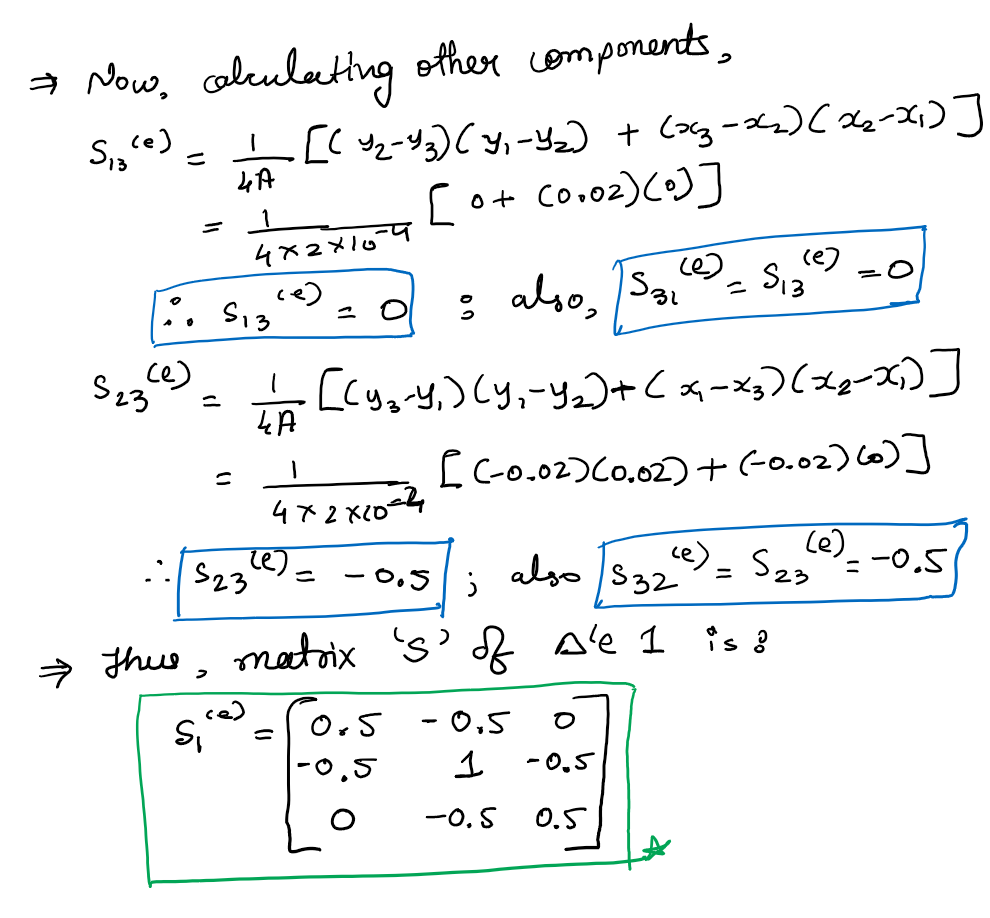 ⇒ Now, calculating other components,
S₁₃⁽ᵉ⁾ = 1/4A [(y₂-y₃)(y₁-y₂) + (x₃-x₂)(x₂-x₁)]
= 1/(4×2×10⁻⁴) [0+ (0.02)(0)]
∴ S₁₃⁽ᵉ⁾ = 0 ; also, S₃₁⁽ᵉ⁾ = S₁₃⁽ᵉ⁾ = 0
S₂₃⁽ᵉ⁾ = 1/4A [(y₃-y₁)(y₁-y₂)+(x₁-x₃)(x₂-x₁)]
= 1/(4×2×10⁻⁴) [(-0.02)(0.02)+(-0.02)(0)]
∴ S₂₃⁽ᵉ⁾ = -0.5 ; also S₃₂⁽ᵉ⁾ = S₂₃⁽ᵉ⁾ = -0.5
⇒ Thus, matrix 'S' of Δ'e 1 is :
S₁⁽ᵉ⁾ = [0.5 -0.5 0
-0.5 1 -0.5
0 -0.5 0.5]